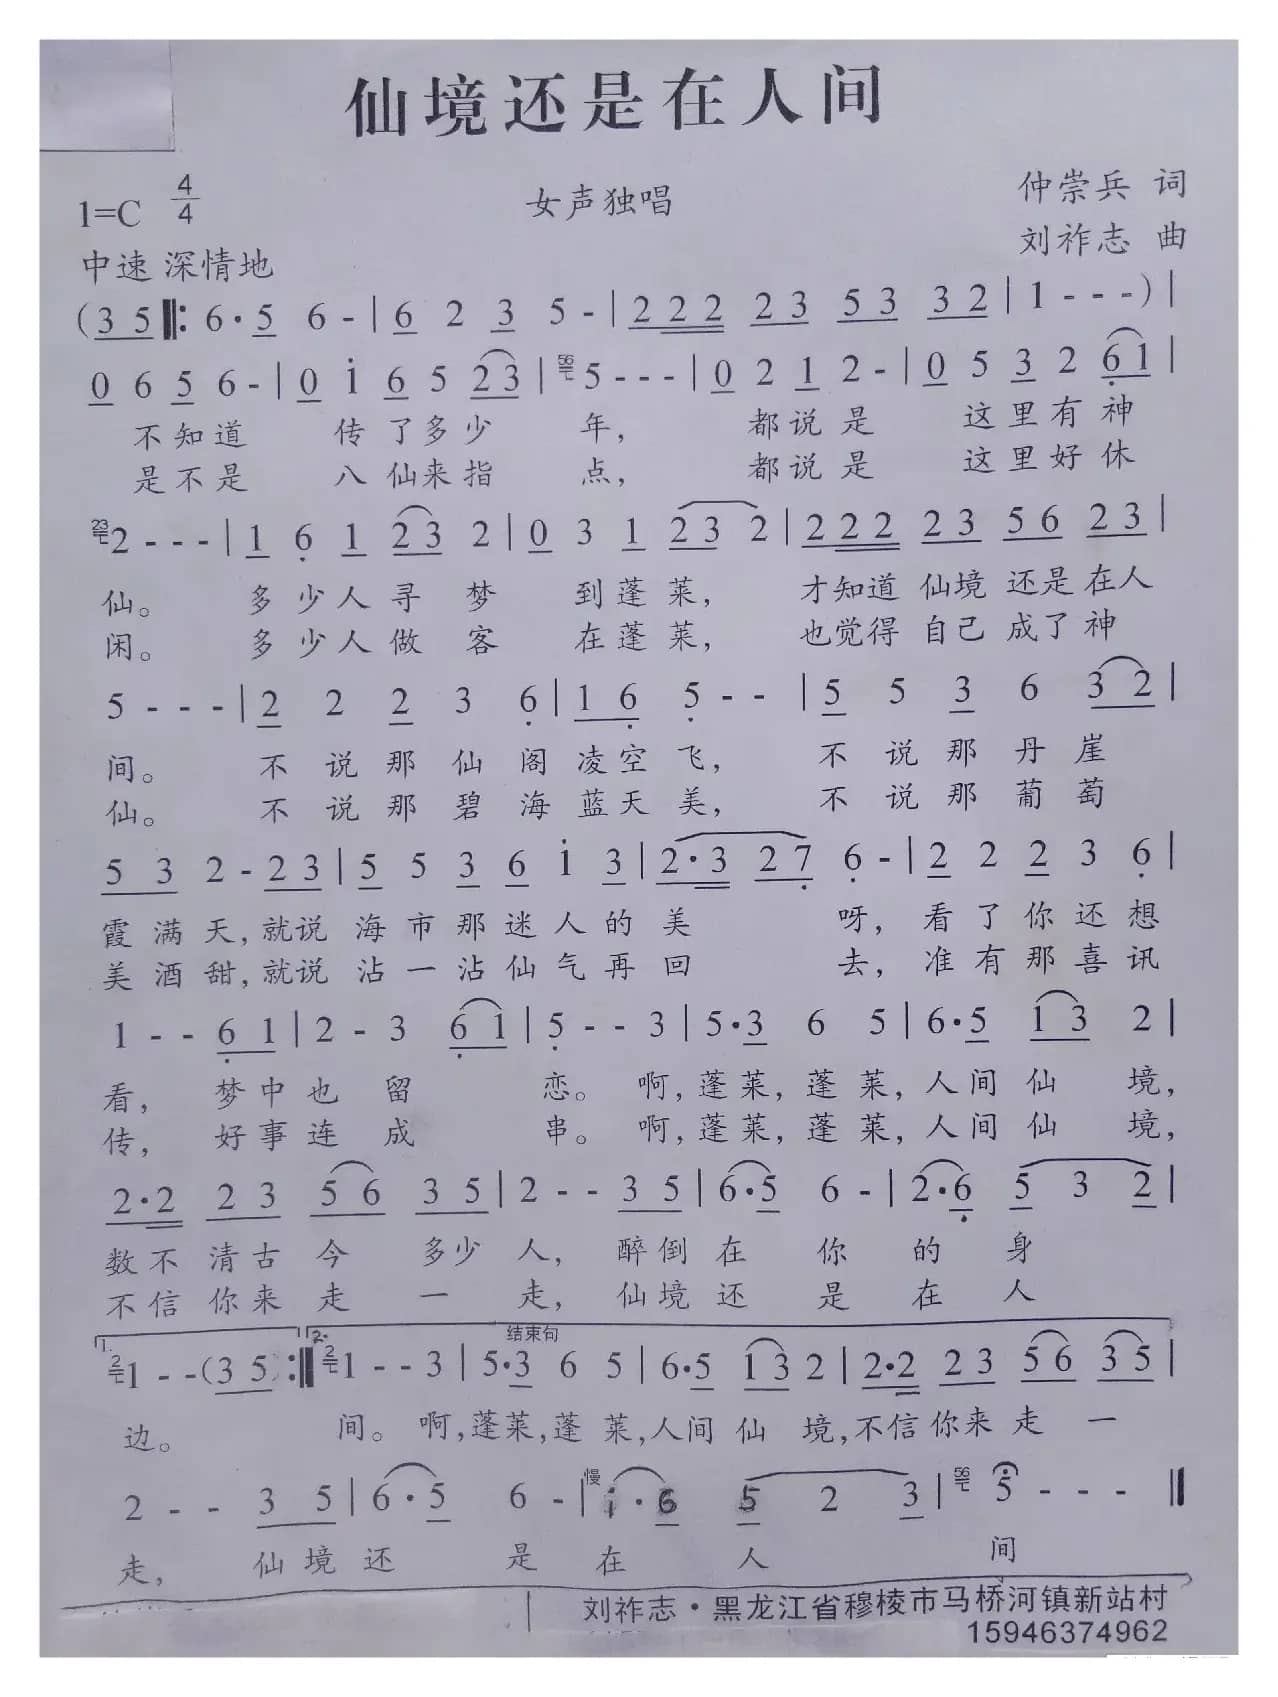 仙境还是在人间
1=C 4/4
女声独唱
仲崇兵 词
中速 深情地
刘祚志 曲
(3 5 ‖: 6·5 6 - | 6 2 3 5 - | 2 2 2 2 3 5 3 3 2 | 1 - - -) |
0 6 5 6 - | 0 i 6 5 2 3 | 56 5 - - - | 0 2 1 2 - | 0 5 3 2 6 1 |
不知道 传了多少 年， 都说是 这里有神
是不是 八仙来指 点， 都说是 这里好休
23 2 - - - | 1 6 1 2 3 2 | 0 3 1 2 3 2 | 2 2 2 2 3 5 6 2 3 |
仙。 多少人寻梦 到蓬莱， 才知道 仙境 还是在人
闲。 多少人做客 在蓬莱， 也觉得 自己 成了神
5 - - - | 2 2 2 3 6 | 1 6 5 - - | 5 5 3 6 3 2 |
间。 不说那仙阁凌空飞， 不说那丹崖
仙。 不说那碧海蓝天美， 不说那葡萄
5 3 2 - 2 3 | 5 5 3 6 i 3 | 2·3 2 7 6 - | 2 2 2 3 6 |
霞满天，就说海市那迷人的美 呀，看了你还想
美酒甜，就说沾一沾仙气再回 去，准有那喜讯
1 - - 6 1 | 2 - 3 6 1 | 5 - - 3 | 5·3 6 5 | 6·5 1 3 2 |
看， 梦中也留 恋。 啊，蓬莱，蓬莱，人间仙境，
传， 好事连成 串。 啊，蓬莱，蓬莱，人间仙境，
2·2 2 3 5 6 3 5 | 2 - - 3 5 | 6·5 6 - | 2·6 5 3 2 |
数不清古今 多少人， 醉倒在你的身
不信你来走一走， 仙境还是在人
1. 2. 结束句
2 1 - - (3 5) :‖ 2 1 - - 3 | 5·3 6 5 | 6·5 1 3 2 | 2·2 2 3 5 6 3 5 |
边。 间。啊，蓬莱，蓬莱，人间仙境，不信你来走一
慢
2 - - 3 5 | 6·5 6 - | i·6 5 2 3 | 56 5 - - - ‖
走， 仙境还是在人间
刘祚志·黑龙江省穆棱市马桥河镇新站村
15946374962